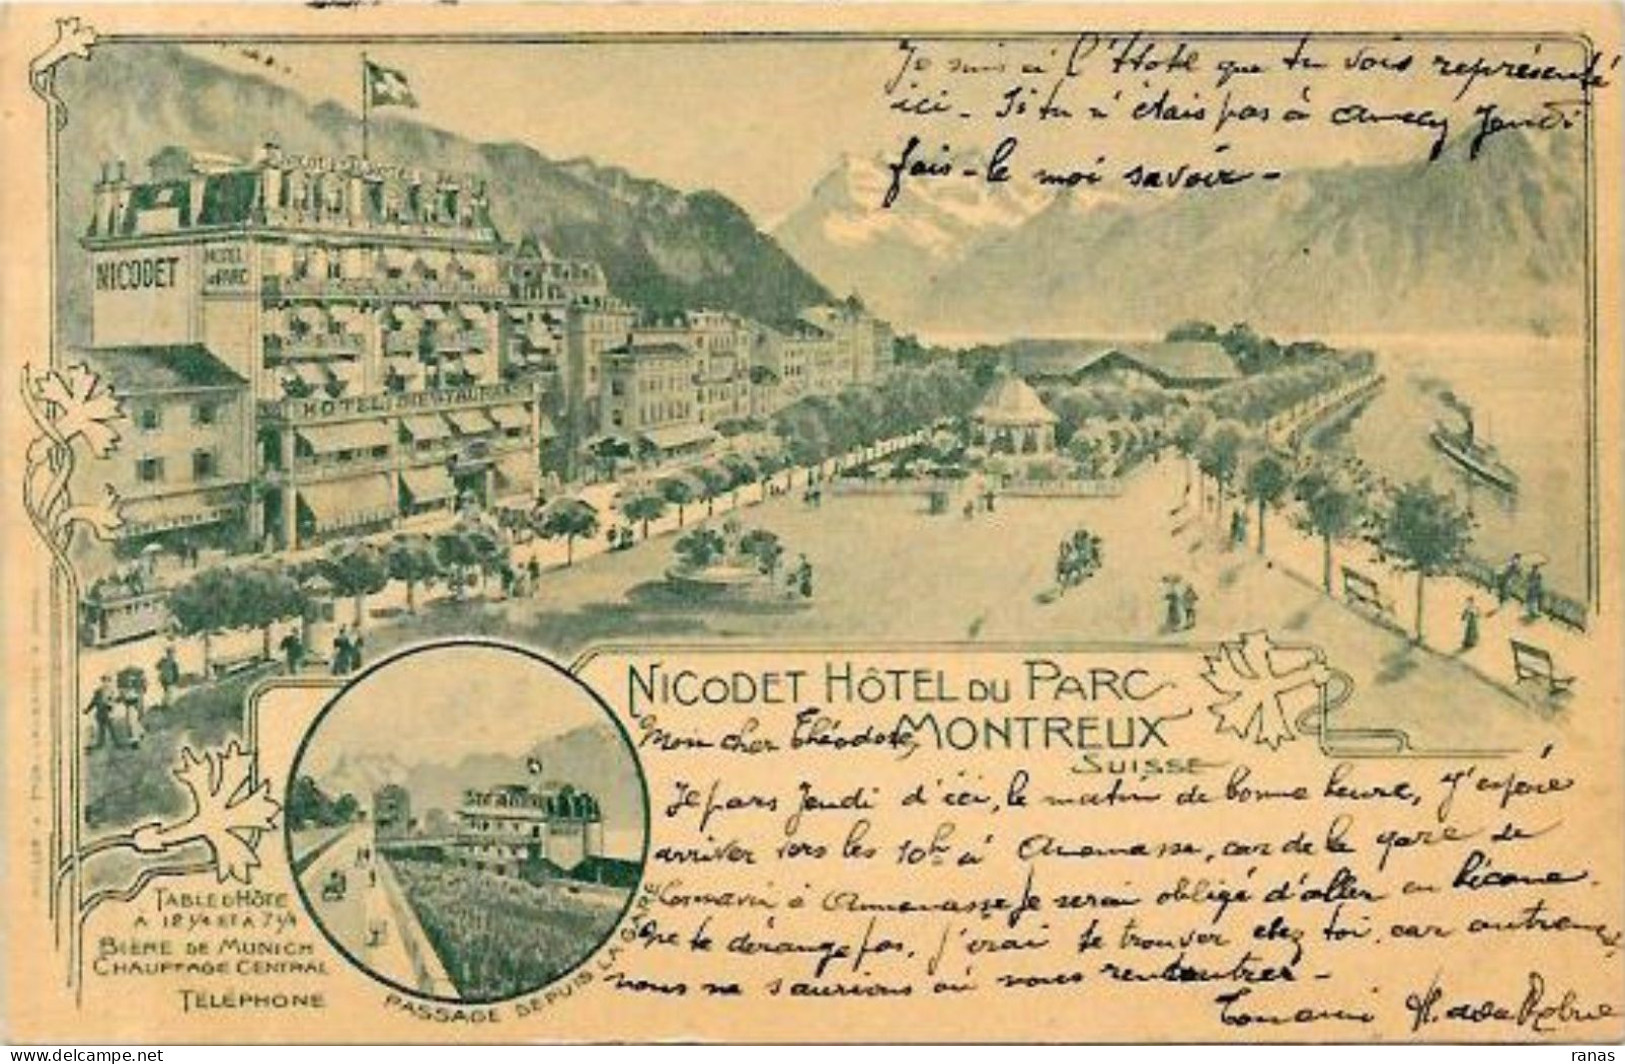 Je suis à l'Hotel que tu vois représenté
ici - Si tu n'étais pas à Annecy Jeudi
fais-le moi savoir -
NICODET
HOTEL
DU PARC
HOTEL RESTAURANT
NICODET HÔTEL DU PARC
MONTREUX
SUISSE
Mon cher Théodore,
Je pars Jeudi d'ici, le matin de bonne heure, j'espère
arriver vers les 10h à Annemasse, car de la gare de
Cornavin à Annemasse je serai obligé d'aller en bécane.
Ne te dérange pas, j'irai te trouver chez toi, car autrement
nous ne saurions où nous rencontrer -
Ton ami
TABLE D'HÔTE
A 12 1/4 ET A 7 1/4
BIÈRE DE MUNICH
CHAUFFAGE CENTRAL
TELEPHONE
PASSAGE DEPUIS LA GARE
Delcampe.net
ranas